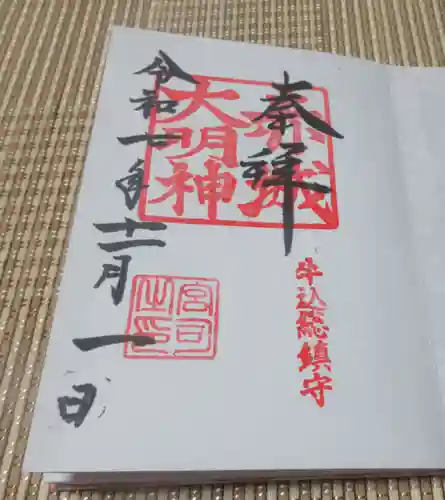 奉拝
赤城
大明神
牛込総鎮守
宮司
之印
令和一年十二月一日